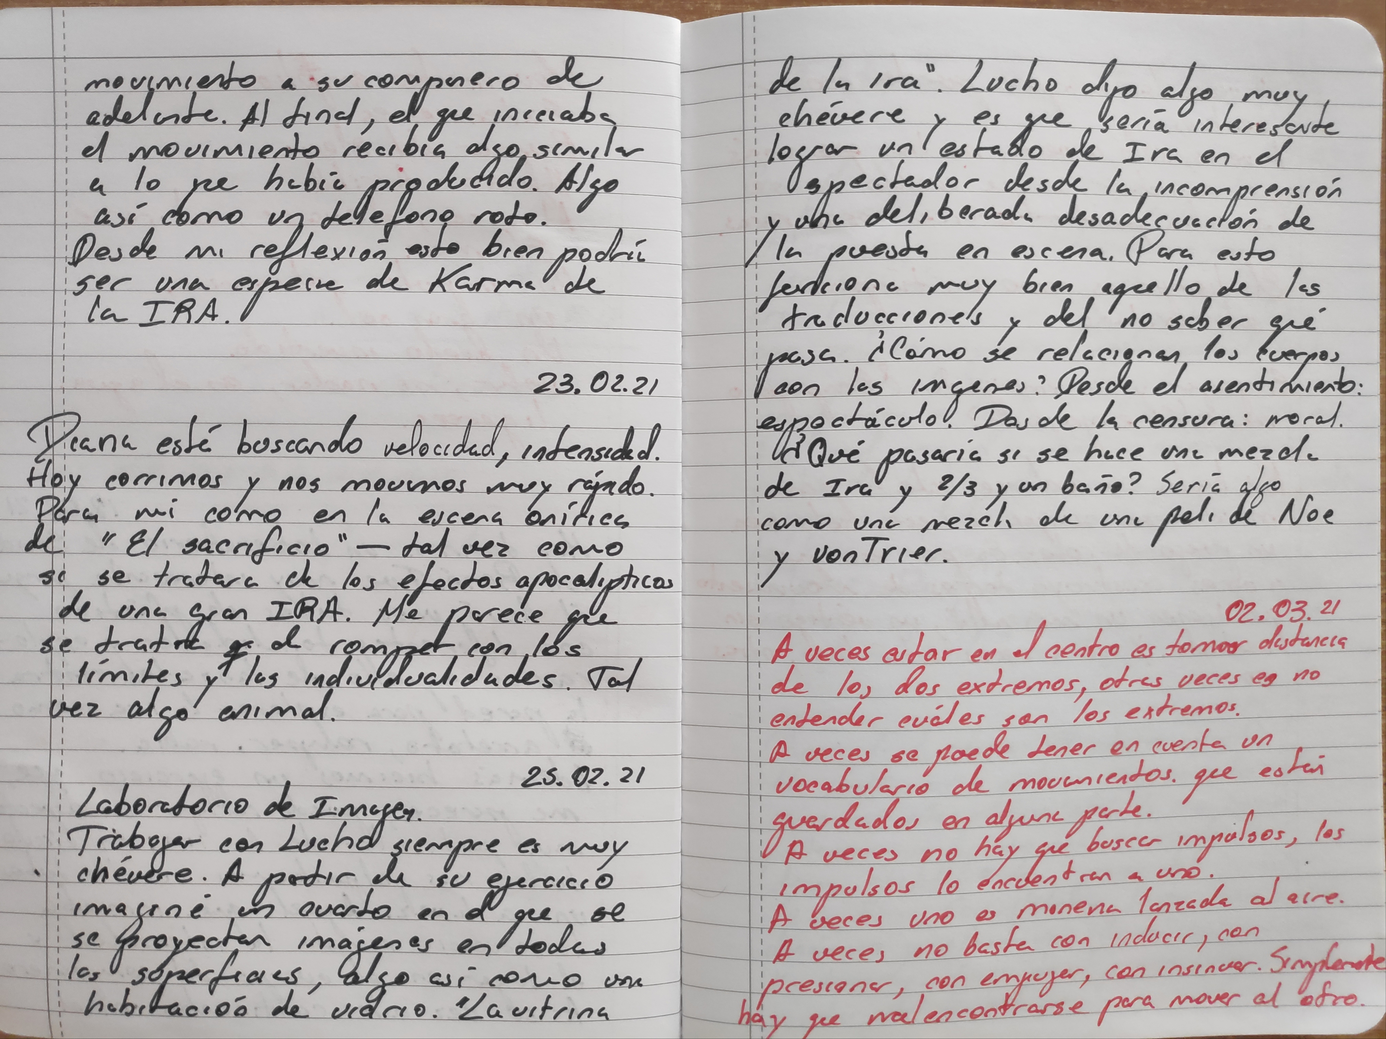 movimiento a su compañero de
adelante. Al final, el que iniciaba
el movimiento recibía algo similar
a lo que había producido. Algo
así como un teléfono roto.
Desde mi reflexión esto bien podría
ser una especie de Karma de
la IRA.
23.02.21
Diana está buscando velocidad, intensidad.
Hoy corrimos y nos movimos muy rápido.
Para mi como en la escena onírica
de "El sacrificio" — tal vez como
si se tratara de los efectos apocalípticos
de una gran IRA. Me parece que
se trata de romper con los
límites y las individualidades. Tal
vez algo animal.
25.02.21
Laboratorio de Imagen.
Trabajar con Lucho siempre es muy
chévere. A partir de su ejercicio
imaginé un cuarto en el que se
se proyectan imágenes en todas
las superficies, algo así como una
habitación de vidrio. "La vitrina
de la ira". Lucho dijo algo muy
chévere y es que sería interesante
lograr un estado de Ira en el
espectador desde la incomprensión
y una deliberada desadecuación de
la puesta en escena. Para esto
funciona muy bien aquello de las
traducciones y del no saber qué
pasa. ¿Cómo se relacionan los cuerpos
con las imgenes? Desde el asentimiento:
espectáculo. Desde la censura: moral.
¿Qué pasaría si se hace una mezcla
de Ira y 2/3 y un baño? Sería algo
como una mezcla de una peli de Noe
y vonTrier.
02.03.21
A veces estar en el centro es tomar distancia
de los dos extremos, otras veces es no
entender cuáles son los extremos.
A veces se puede tener en cuenta un
vocabulario de movimientos que están
guardados en alguna parte.
A veces no hay que buscar impulsos, los
impulsos lo encuentran a uno.
A veces uno es moneda lanzada al aire.
A veces no basta con inducir, con
presionar, con empujar, con insinuar. Simplemente
hay que malencontrarse para mover al otro.